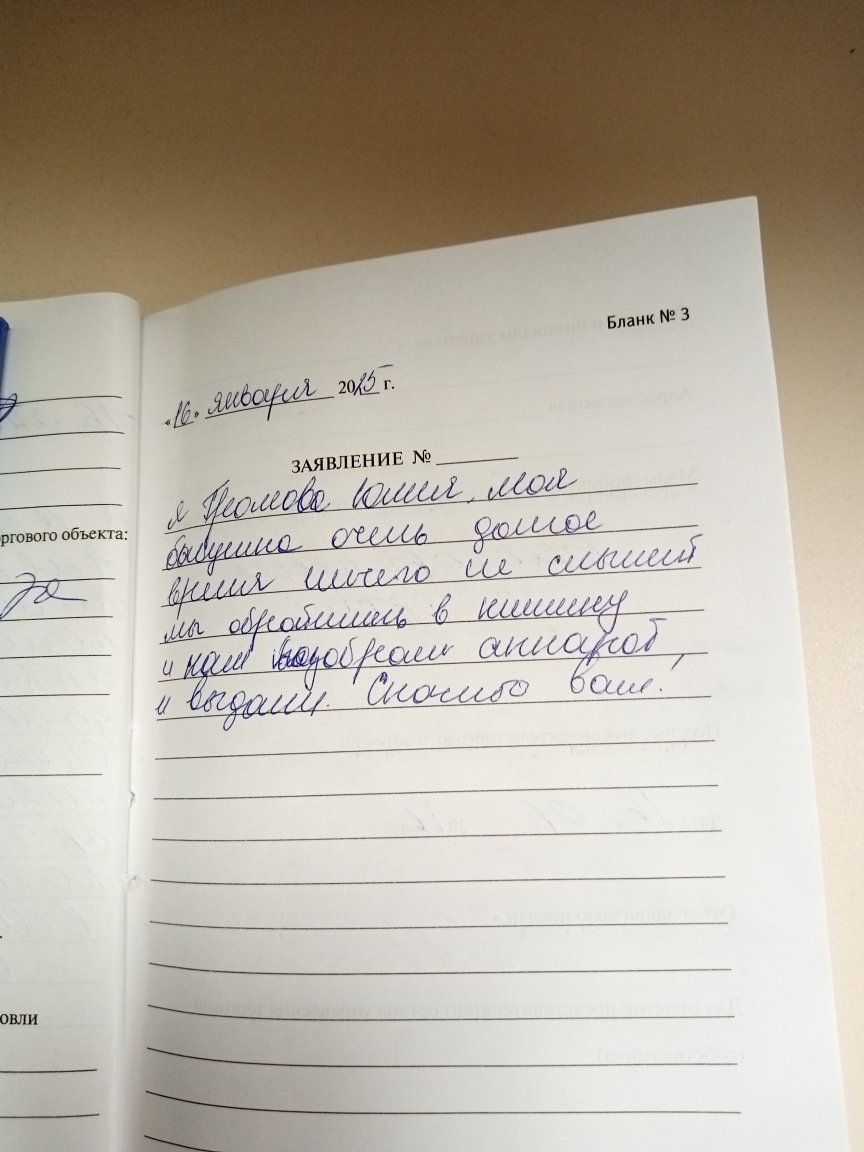 Бланк № 3
«16» января 2025 г.
ЗАЯВЛЕНИЕ № ______
я Громова Юлия, моя
бабушка очень долгое
время ничего не слышит
мы обратились в
и нам подобрали аппарат,
и выдали. Спасибо вам!
ргового объекта:
овли